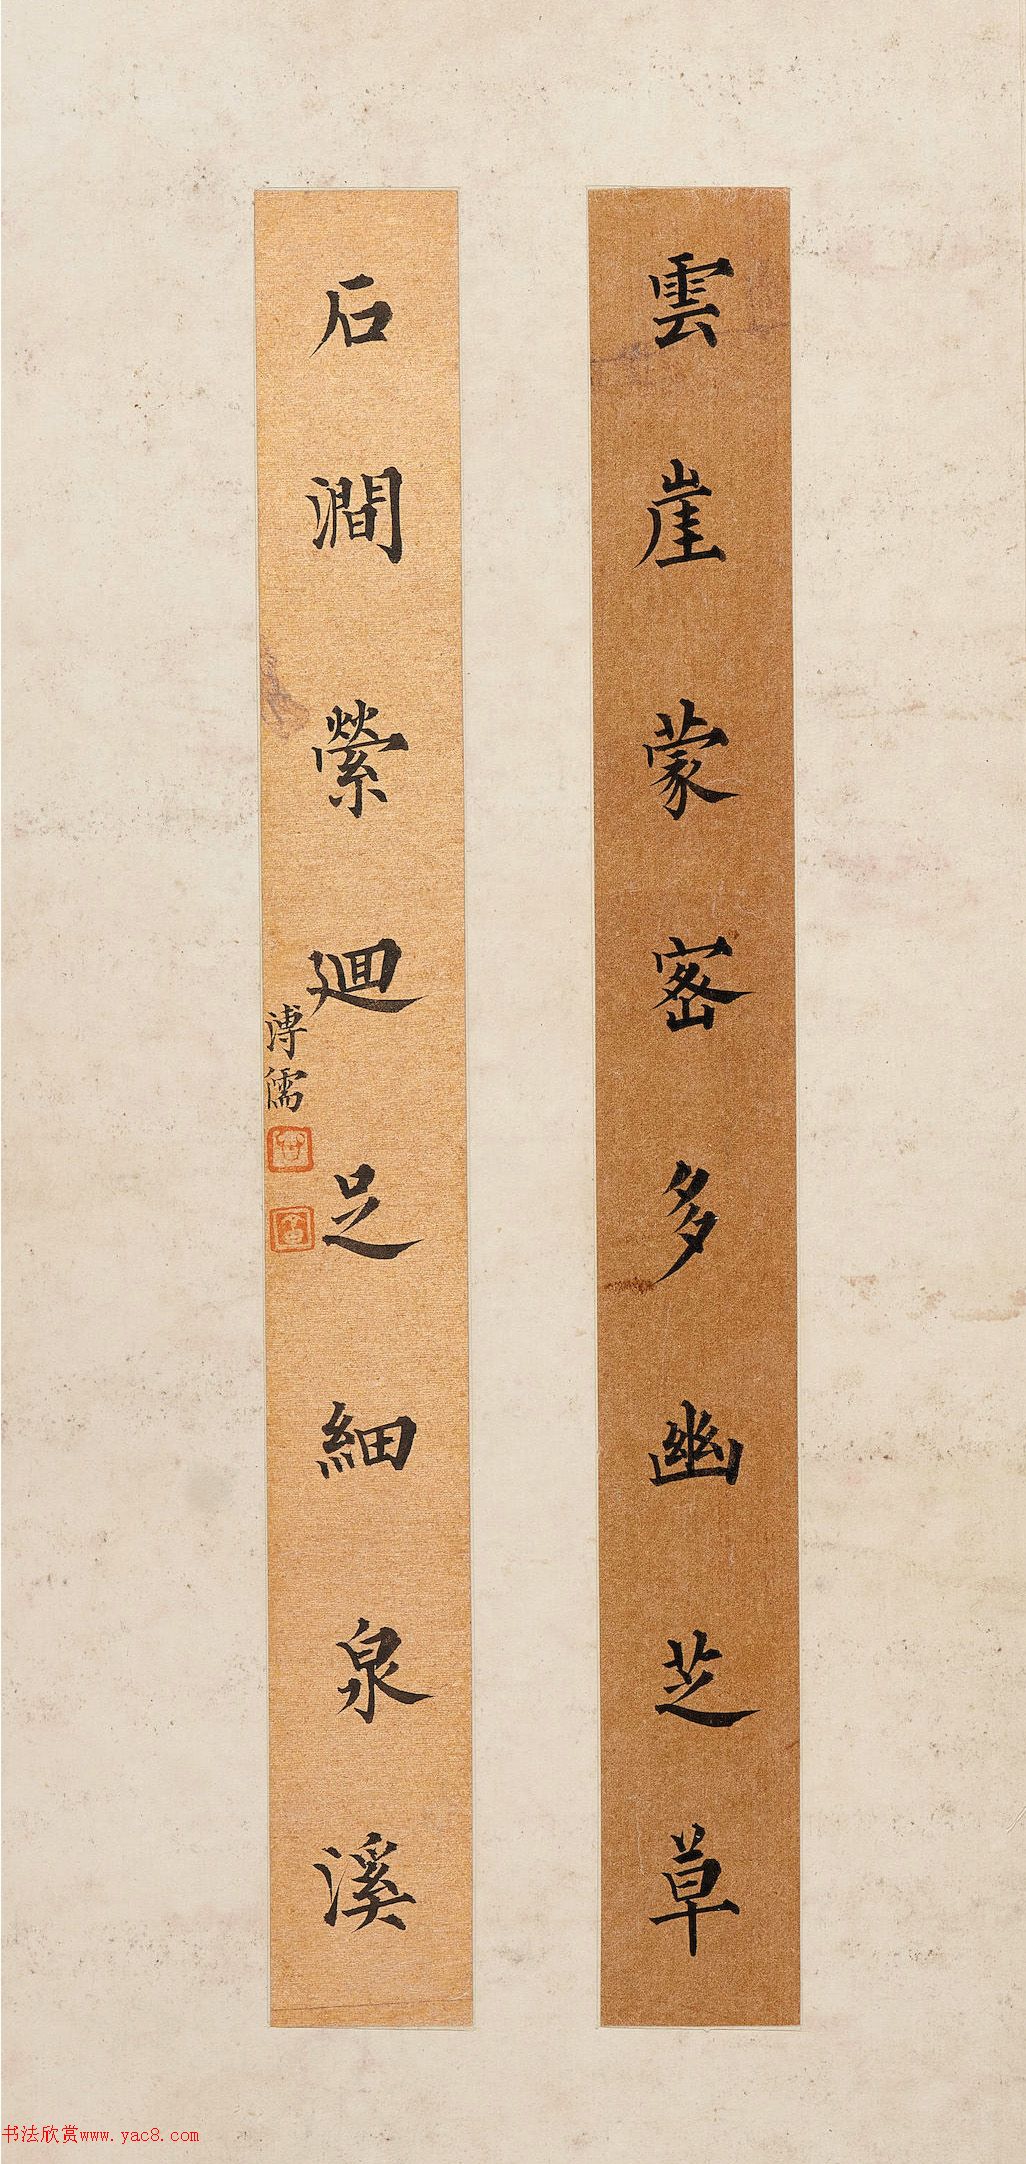 雲崖蒙密多幽芝草
石澗縈迴足細泉溪
溥儒
书法欣赏www.yac8.com